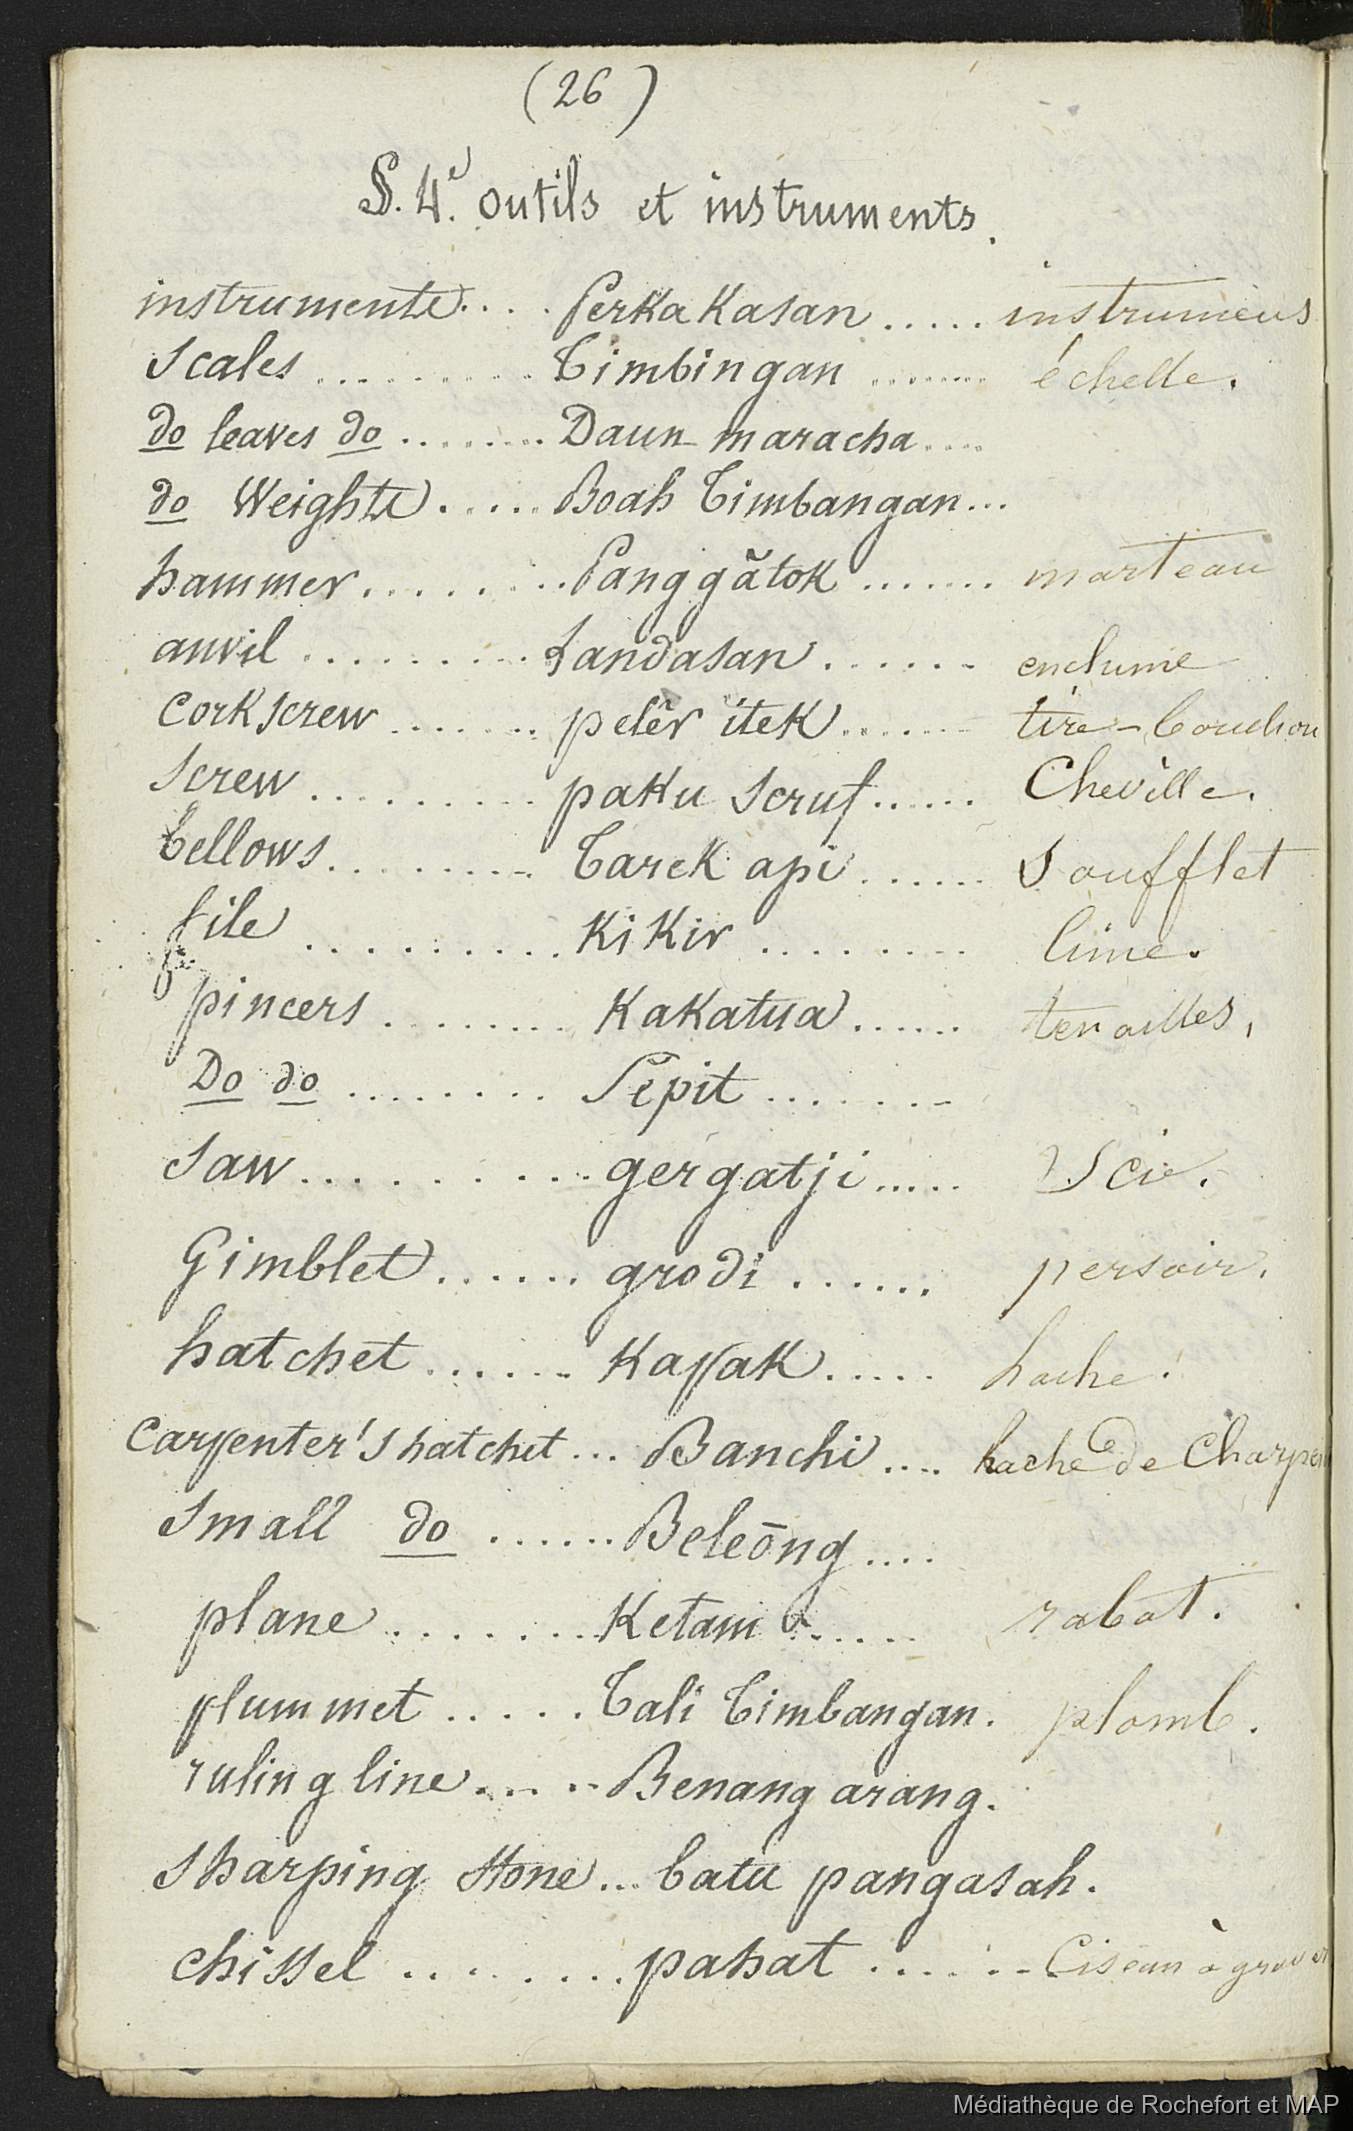 (26)
§. 4e. outils et instruments.
instrumente.... Perkakasan ..... instrumens
Scales .......... Timbingan ....... échelle.
do leaves do ........ Daun maracha ....
do Weighte ..... Boah Timbangan...
hammer ......... Panggătok ....... marteau
anvil .......... Landasan ...... enclume
Corkscrew ....... pelêr itek ...... tire-bouchon
Screw .......... paku scruf ...... Cheville.
bellows ......... Tarek api ...... Soufflet
file .......... Kikir ........ lime.
pincers ........ Kakatua ...... tenailles,
Do do ........ Sepit .......
Saw ......... gergatji ..... Scie.
Gimblet ...... grodi ...... persoir.
hatchet ...... Kapak ..... hache.
Carpenter's hatchet ... Banchi .... hache de Charpen
Small do ...... Beleōng ....
plane ....... Ketam ...... rabot.
plummet ..... Tali Timbangan. plomb.
ruling line .... Benang arang.
Sharping Stone ... batu pangasah.
chissel ........ pahat ...... Ciseau à graver
Médiathèque de Rochefort et MAP